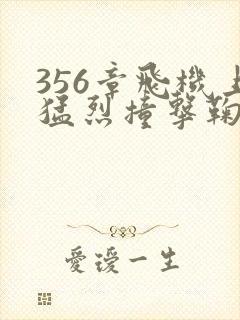 356章飛機上
猛烈撞撃鞠
愛璦一生